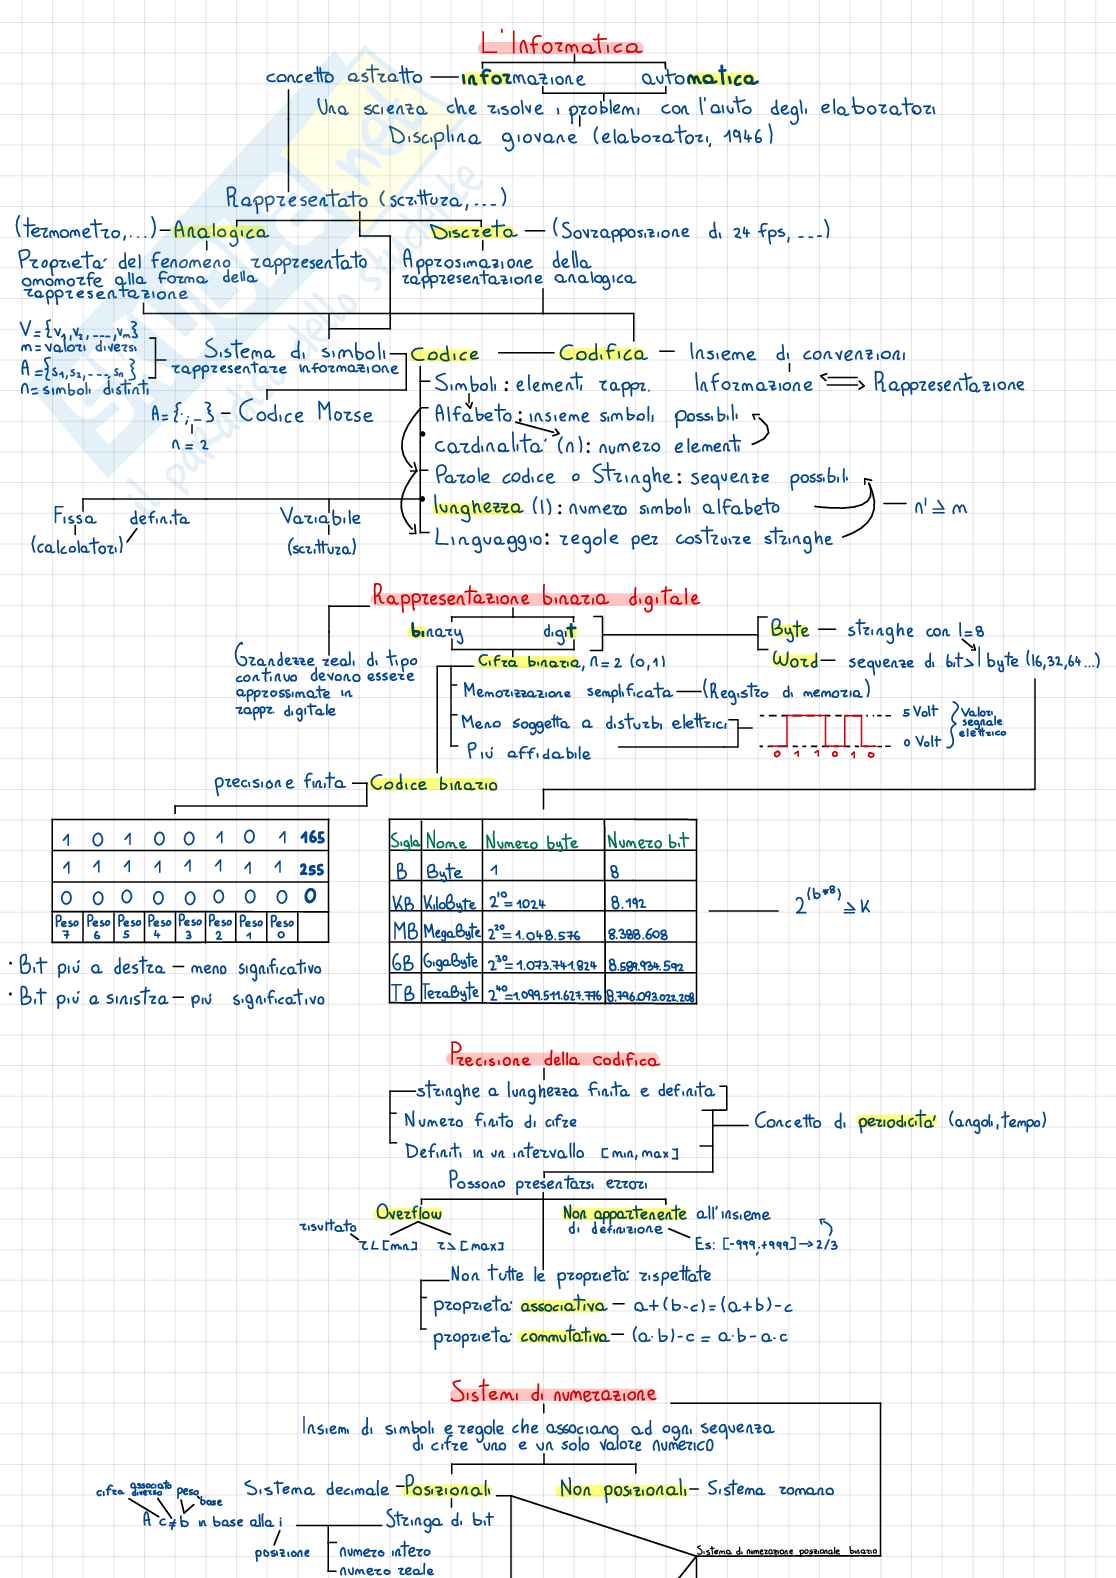 L'Informatica
concetto astratto — informazione automatica
Una scienza che risolve i problemi con l'aiuto degli elaboratori
Disciplina giovane (elaboratori, 1946)
Rappresentato (scrittura, ---)
(termometro,...) – Analogica Discreta — (Sovrapposizione di 24 fps, ---)
Proprietà del fenomeno rappresentato
omomorfe alla forma della
rappresentazione
Approsimazione della
rappresentazione analogica
V={v1,v2,---,vm}
m=valori diversi
A={s1,s2,...,sn}
n=simboli distinti
Sistema di simboli
rappresentare informazione
Codice — Codifica — Insieme di convenzioni
Informazione ⇌ Rappresentazione
A={·,–} – Codice Morse
n=2
Simboli: elementi rappr.
Alfabeto: insieme simboli possibili
cardinalità (n): numero elementi
Parole codice o Stringhe: sequenze possibili
lunghezza (l): numero simboli alfabeto — n^l ≥ m
Linguaggio: regole per costruire stringhe
Fissa definita Variabile
(calcolatori) (scrittura)
Rappresentazione binaria digitale
binary digit
Byte — stringhe con l=8
Word — sequenze di bit > 1 byte (16,32,64...)
Grandezze reali di tipo
continuo devono essere
approssimate in
rappr digitale
Cifra binaria, n=2 (0,1)
Memorizzazione semplificata — (Registro di memoria)
Meno soggetta a disturbi elettrici
Più affidabile
5 Volt
0 Volt
Valori
segnale
elettrico
0 1 1 0 1 0
precisione finita – Codice binario
1 0 1 0 0 1 0 1 165
1 1 1 1 1 1 1 1 255
0 0 0 0 0 0 0 0 0
Peso 7 Peso 6 Peso 5 Peso 4 Peso 3 Peso 2 Peso 1 Peso 0
· Bit più a destra – meno significativo
· Bit più a sinistra – più significativo
Sigla Nome Numero byte Numero bit
B Byte 1 8
KB KiloByte 2^10=1024 8.192
MB MegaByte 2^20=1.048.576 8.388.608
GB GigaByte 2^30=1.073.741.824 8.589.934.592
TB TeraByte 2^40=1.099.511.627.776 8.796.093.022.208
2^(b*8) ≥ K
Precisione della codifica
stringhe a lunghezza finita e definita
Numero finito di cifre
Definiti in un intervallo [min,max]
Concetto di periodicità (angoli,tempo)
Possono presentarsi errori
Overflow
risultato
r<[min] r>[max]
Non appartenente all'insieme
di definizione
Es: [-999,+999]→2/3
Non tutte le proprietà rispettate
proprietà associativa — a+(b-c)=(a+b)-c
proprietà commutativa — (a·b)-c = a·b-a·c
Sistemi di numerazione
Insiemi di simboli e regole che associano ad ogni sequenza
di cifre uno e un solo valore numerico
Sistema decimale – Posizionali Non posizionali – Sistema romano
cifra associato diverso peso
base
A c≠b in base alla i — Stringa di bit
posizione
numero intero
numero reale
Sistema di numerazione posizionale binario